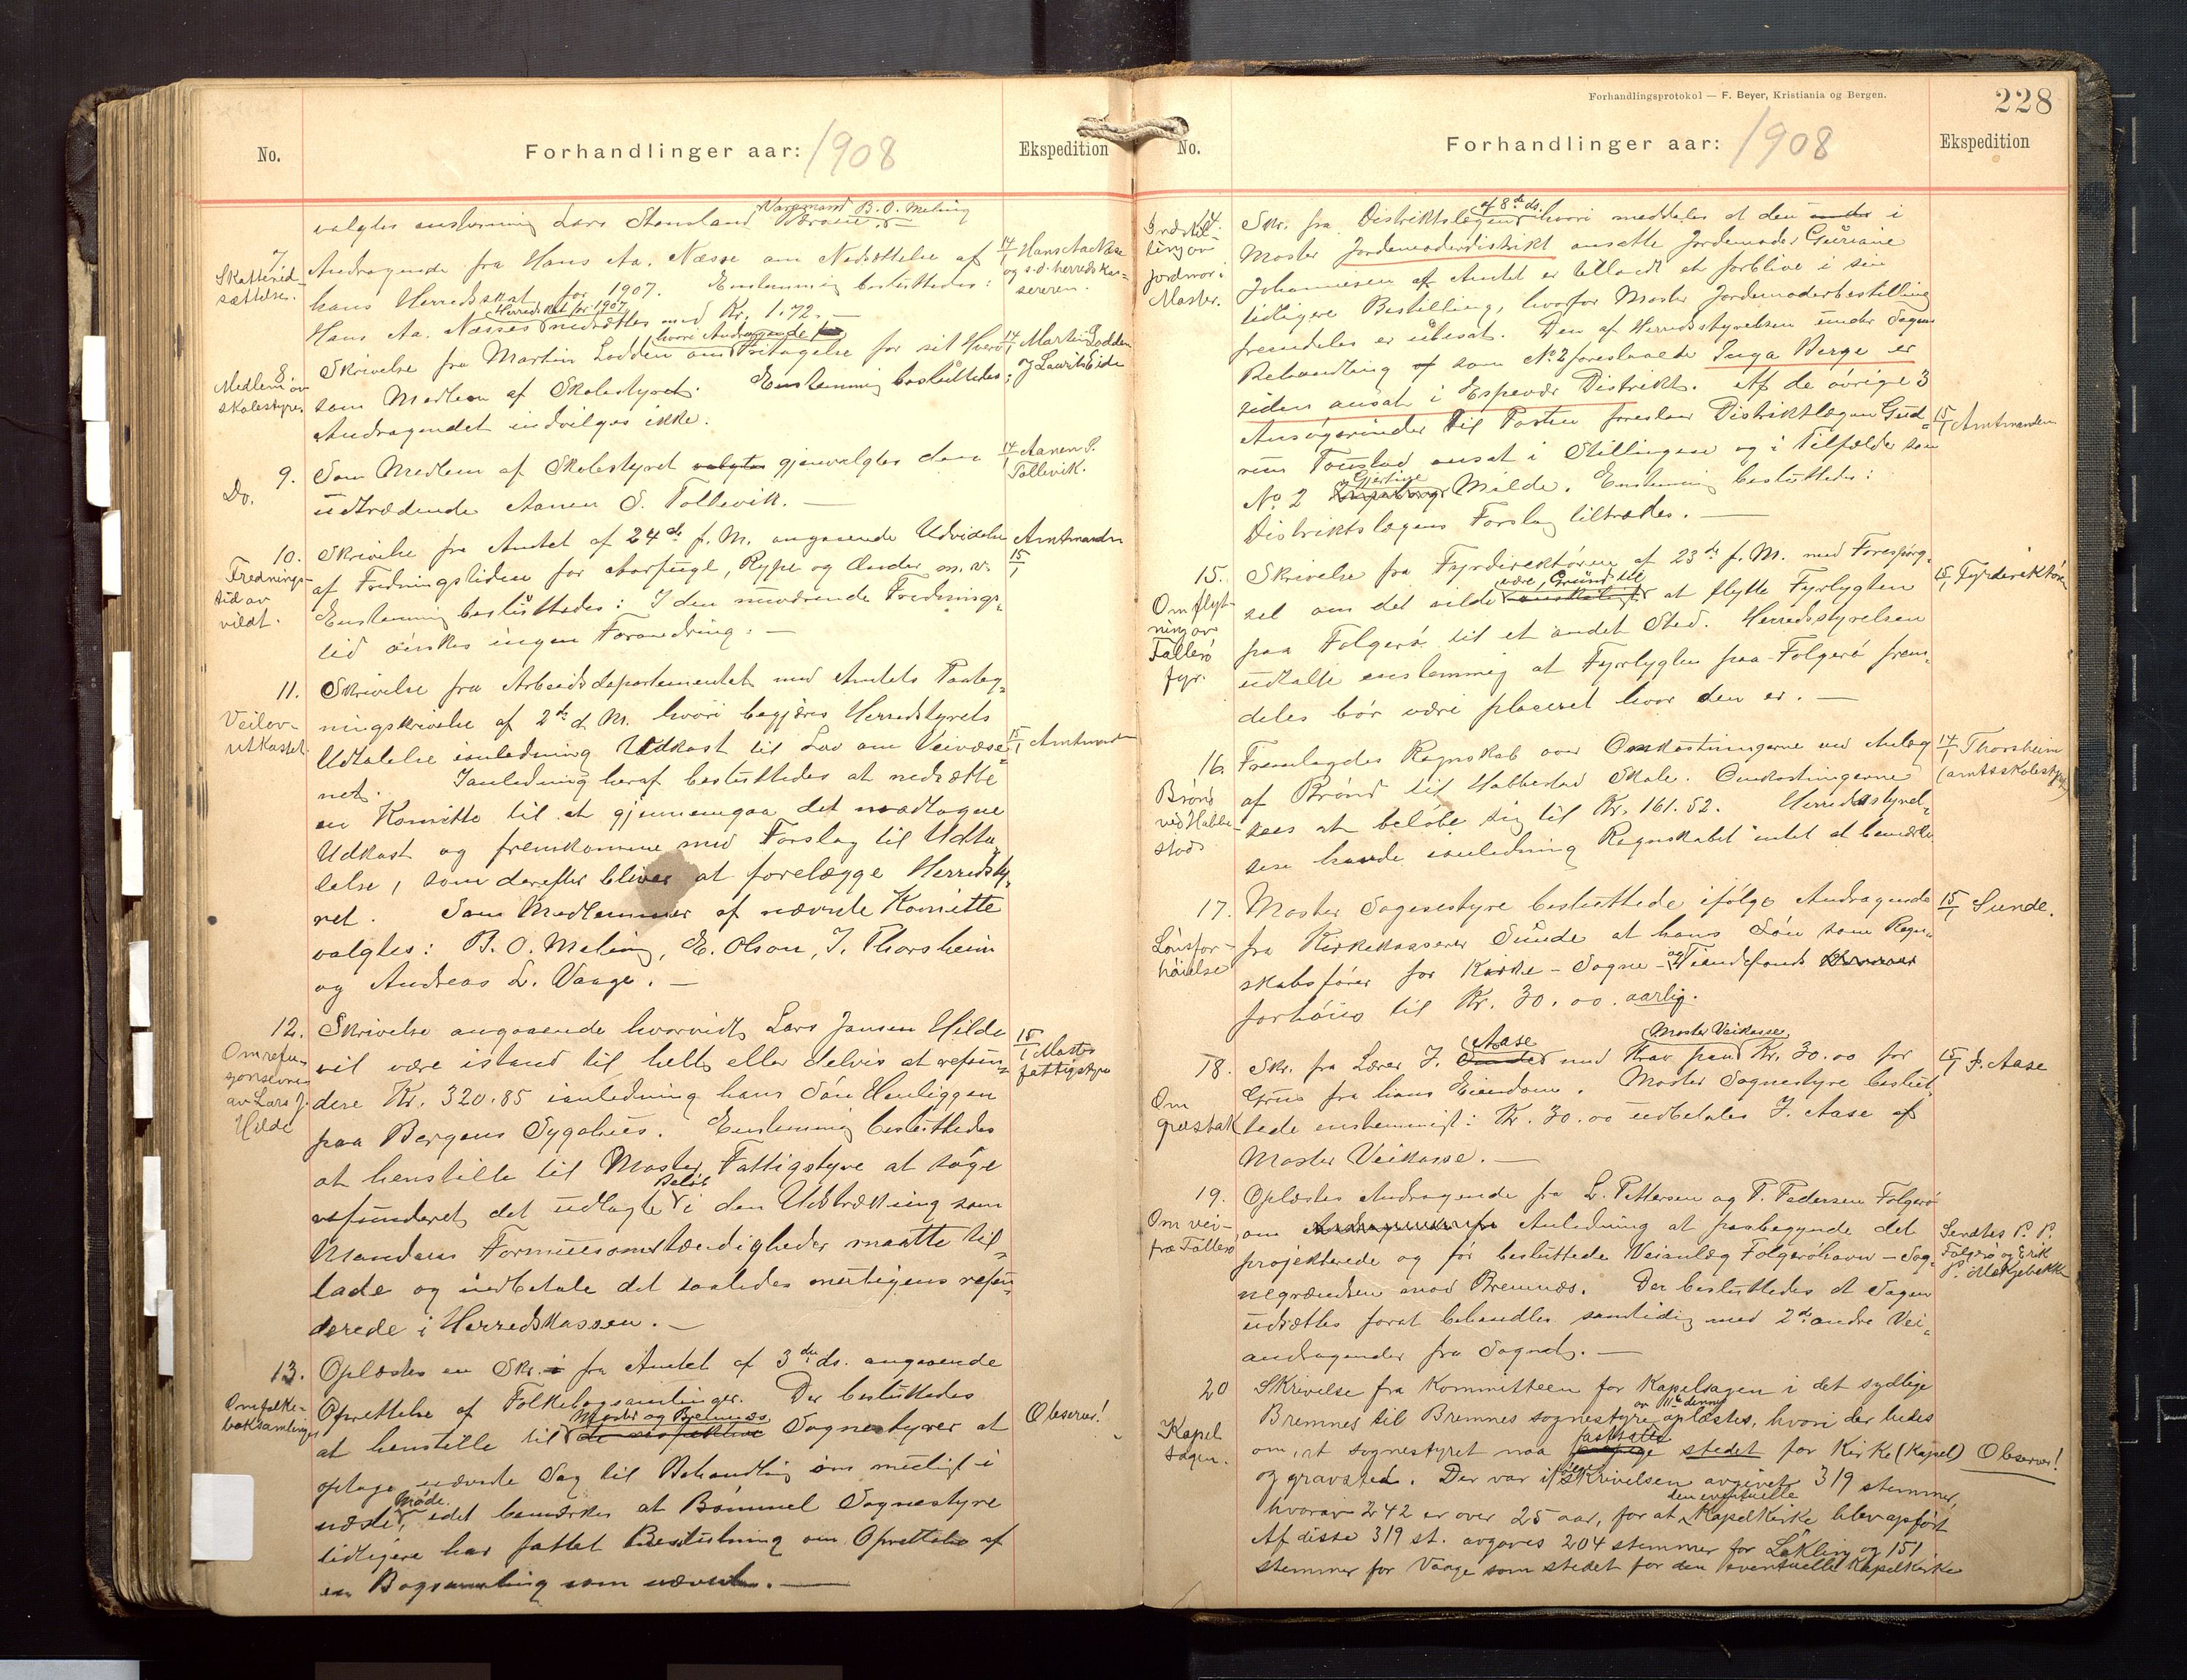 No.
Forhandlinger aar: 1908
Ekspedition
valgtes enstemmig Lars Stensland
Varamand B. O. Meling
7.
Skattened-
sættelse.
Andragende fra Hans Aa. Næsse om Nedsættelse af
hans Herredsskat for 1907. Enstemmig besluttedes:
Herredsskat for 1907
Hans Aa. Næsses nedsættes med Kr. 1.72. —
14/1 Hans Aa Næsse
og s.d. herredskas-
sereren.
8.
Medlem av
skolestyre
hvori Andragende
Skrivelse fra Martin Lodden om Fritagelse for sit Hverv
som Medlem af Skolestyret. Enstemmig besluttedes:
Andragendet indvilges ikke.
14/1 Martin Lodden
og Laurits Eide
9.
Do.
Som Medlem af Skolestyret valgtes gjenvalgtes den
udtrædende Aanen S. Tollevik. —
14/1 Aanen S.
Tollevik.
10.
Frednings-
tid av
vildt.
Skrivelse fra Amtet af 24de f. M. angaaende Udvidelse
af Fredningstiden for Aarfugl, Rype og Ænder m. v.
Enstemmig besluttedes: I den nuværende Frednings-
tid ønskes ingen Forandring. —
Amtmanden
15/1
11.
Veilov-
utkastet.
Skrivelse fra Arbeidsdepartementet med Amtets Paateg-
ningskrivelse af 2de d. M. hvori begjæres Herredstyrets
Udtalelse ianledning Udkast til Lov om Veivæse-
net. Ianledning heraf besluttedes at nedsætte
en Komitte til at gjennemgaa det modtagne
Udkast og fremkomme med Forslag til Udta-
lelse, som derefter bliver at forelægge Herredsty-
ret. Som Medlemmer af nævnte Komitte
valgtes: B. O. Meling, E. Olson, J. Thorsheim
og Andreas L. Vaage. —
15/1 Amtmand
12.
Om refu-
sjonsevne
av Lars J.
Hilde
Skrivelse angaaende hvorvidt Lars Jansen Hilde
vil være istand til helt eller delvis at refun-
dere Kr. 320.85 ianledning hans Søn Henliggen
paa Bergens Sygehus. Enstemmig besluttedes
at henstille til Moster Fattigstyre at søge
Beløb
refunderet det udlagte i den Udstrækning som
Mandens Formuesomstændigheder maatte til-
lade og indbetale det saaledes muligens refun-
derede i Herredskassen. —
15/1 Moster
fattigstyre
13.
Om folke-
boksamlinger
Oplæstes en Skr. i fra Amtet af 3die ds. angaaende
Oprettelse af Folkebogsamlinger. Der besluttedes
Moster og Bremnæs
at henstille til de respektive Sognestyrer at
optage nævnte Sag til Behandling om muligt i
Møde
næste, idet bemærkes at Bømmel Sognestyre
tidligere har fattet Beslutning om Oprettelse af
en Bogsamling som nævnt. —
Observer!
Forhandlingsprotokol — F. Beyer, Kristiania og Bergen.
228
No.
Forhandlinger aar: 1908
Ekspedition
14.
jordmor i
Moster.
af 8de ds.
Skr. fra Distriktslægen hvori meddeles at den i
Moster Jordemoderdistrikt ansatte Jordemoder Guriane
Johannesen af Amtet er tilladt at forblive i sin
tidligere Bestilling, hvorfor Moster Jordemoderbestilling
fremdeles er ubesat. Den af Herredsstyrelsen under Sagens
Behandling som No 2 foreslaaede Inga Berge er
siden ansat i Espevær Distrikt. Af de øvrige 3
Ansøgerinder til Posten foreslaar Distriktslægen Gud-
run Toustad ansat i Stillingen og i Tilfælde som
Gjertine
No 2 Milde. Enstemmig besluttedes:
Distriktslægens Forslag tiltrædes. —
15/1 Amtmanden
15.
Om flyt-
ning av
Følgerø
fyr.
Skrivelse fra Fyrdirektøren af 23de f. M. med Forespørg-
være Grund til
sel om det vilde at flytte Fyrlygten
paa Folgerø til et andet Sted. Herredsstyrelsen
udtalte enstemmig at Fyrlygten paa Folgerø frem-
deles bør være placeret hvor den er. —
15/1 Fyrdirektøren
16.
Brønd
ved Habbe-
stad
Fremlagdes Regnskab over Omkostningerne ved Anlæg
af Brønd til Habbestad Skole. Omkostningerne
sees at beløbe sig til Kr. 161.52. Herredsstyrel-
sen havde ianledning Regnskabet intet at bemærke.
14/1 Thorsheim
(amtsskolestyret)
17.
Lønsfor-
høielse
Moster Sognestyre besluttede ifølge Andragende
fra Kirkekasserer Sunde at hans Løn som Regn-
skabsfører for Kirke-Sogne- og Tiendefonds
forhøies til Kr. 30.00 aarlig.
15/1 Sunde.
18.
Om
grustak
Aase
Moster Veikasse
Skr. fra Lærer J. Sunde med Krav paa Kr. 30.00 for
Grus fra hans Eiendom. Moster Sognestyre beslut-
tede enstemmigt: Kr. 30.00 udbetales J. Aase af
Moster Veikasse. —
15/1 J. Aase
19.
Om vei-
fra Følgerø
Oplæstes Andragende fra L. Pettersen og P. Pedersen Folgerø
om Anledning at paabegynde det
projekterede og før besluttede Veianlæg Folgerøhavn – Sog-
negrændsen mod Bremnæs. Der besluttedes at Sagen
udsættes forat behandles samtidig med 2de andre Vei-
andragender fra Sognet. —
Sendtes P. P.
Folgerø og Erik
P. Mækjebakke
20
Kapel
sagen.
Skrivelse fra Kommitteen for Kapelsagen i det sydlige
av 11te dennes
Bremnes til Bremnes sognestyre oplæstes, hvori der bedes
fastsatte
om, at sognestyret maa stedet for Kirke (Kapel)
og gravsted. Der var ifølge skrivelsen avgivet 319 stemmer,
den eventuelle
hvorav 242 er over 25 aar, for at Kapelkirke blev opført
Af disse 319 st. avgaves 204 stemmer for Løklin og 151
stemmer for Vaage som stedet for den eventuelle Kapelkirke
Observer!